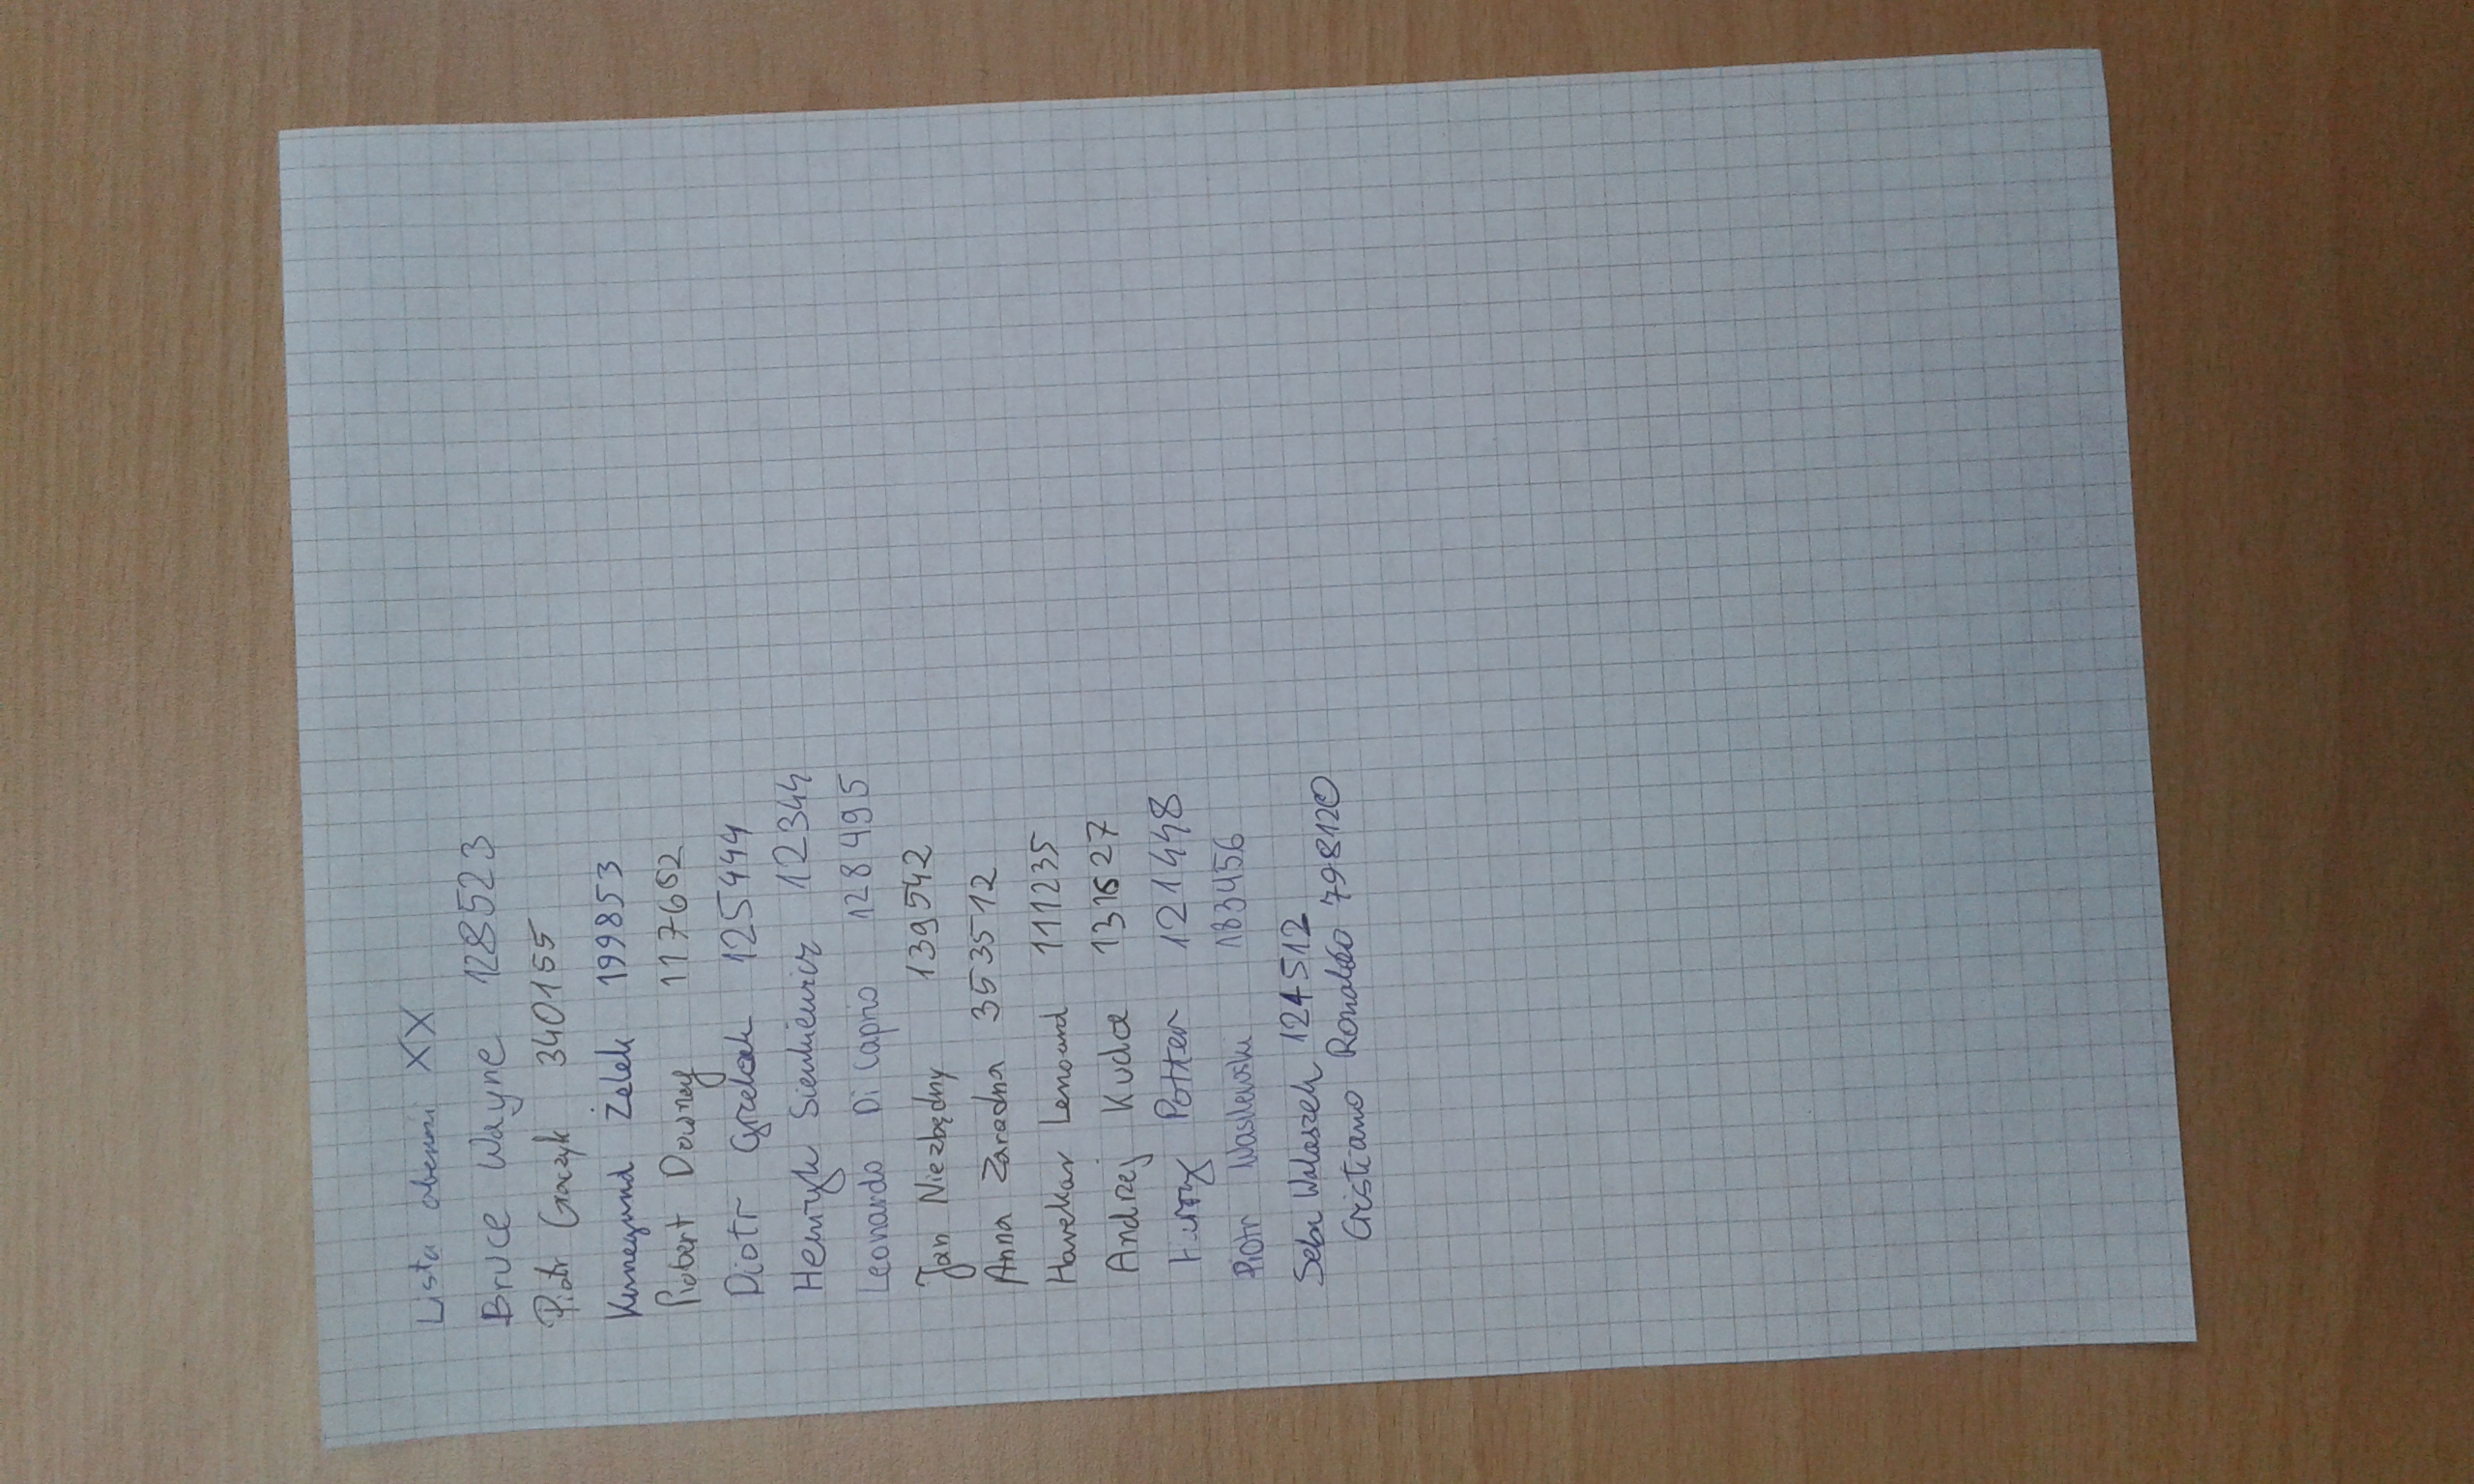 Lista obecności XX
Bruce Wayne 128523
Piotr Graczyk 340155
Kunegund Żelek 199853
Robert Downey 117652
Piotr Grzelak 125444
Henryk Sienkiewicz 12344
Leonardo Di Caprio 128495
Jan Niezbędny 139542
Anna Zaradna 353512
Harekar Lenoard 111235
Andrzej Kudła 131627
Harry Potter 121448
Piotr Wasilewski 183456
Seba Walaszek 124512
Cristiano Ronaldo 798120